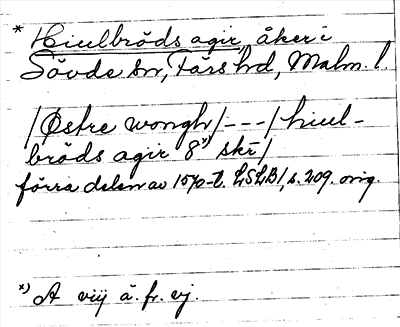 * Hiulbröds agir, åker i
Sövde sn, Färs hd, Malm. l.
/Østre wongh/---/hiul-
bröds agir 8*) skr/
förra delen av 1570-t. LSLB1, s. 209. orig.
*) A viij ä. fr. vj.